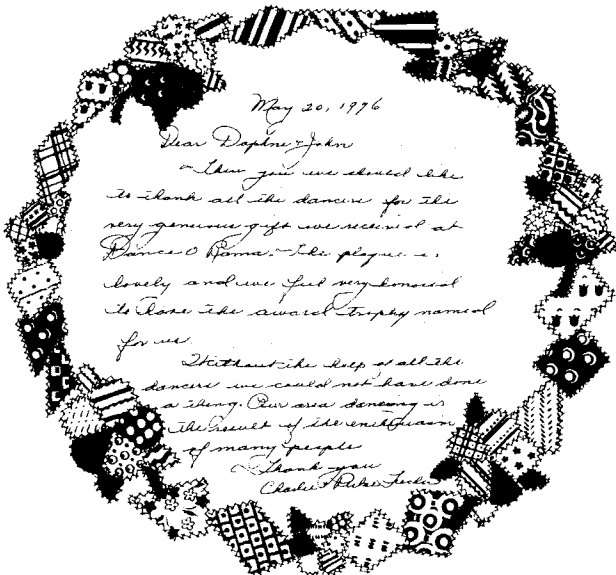 May 20, 1976
Dear Daphne & John
Thru you we should like
to thank all the dancers for the
very generous gift we received at
Dance O Rama. The plaque is
lovely and we feel very honored
to have the award trophy named
for us.
Without the help of all the
dancers we could not have done
a thing. Our area dancing is
the result of the enthusiasm
of many people
Thank you
Charlie